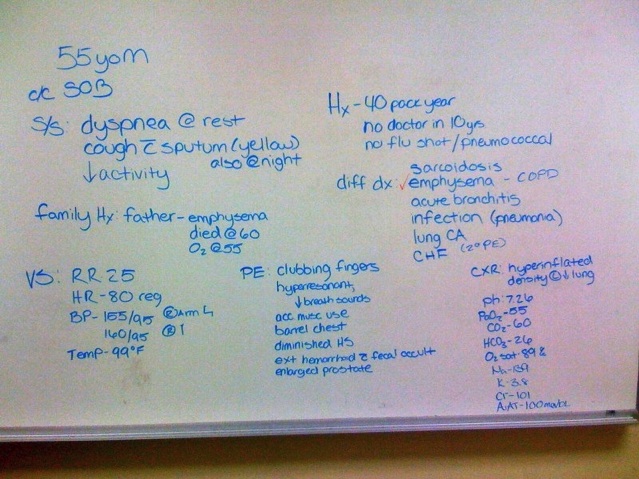 55yom
c/c SOB
S/s: dyspnea @ rest
cough c̄ sputum (yellow)
also @ night
↓activity
family Hx: father - emphysema
died @ 60
O₂ @ 55
Hx - 40 pack year
no doctor in 10 yrs
no flu shot/pneumococcal
diff dx: sarcoidosis
✓emphysema - COPD
acute bronchitis
infection (pneumonia)
lung CA
CHF (2° PE)
VS: RR 25
HR - 80 reg
BP - 155/95 @arm L
160/95 R↑
Temp - 99°F
PE: clubbing fingers
hyperresonant,
↓breath sounds
acc musc use
barrel chest
diminished HS
ext hemorrhoid c̄ fecal occult
enlarged prostate
CXR: hyperinflated
density lung
ph: 7.26
PaO₂ - 55
CO₂ - 60
HCO₃ - 26
O₂ sat - 89%
Na - 139
K - 3.8
Cr - 101